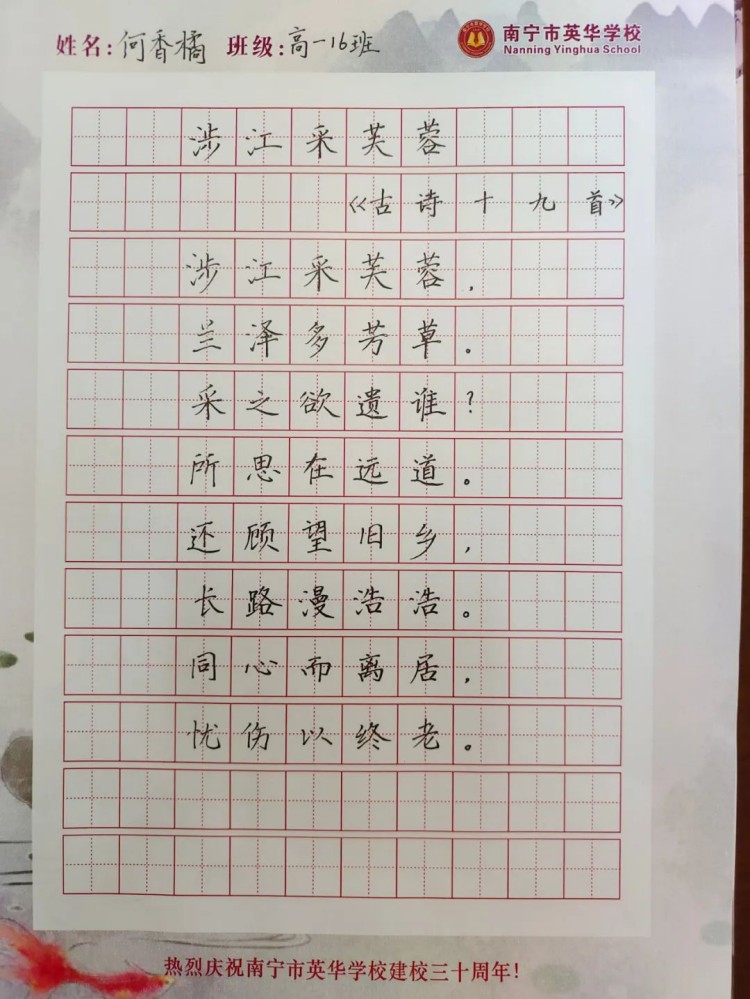 姓名：何香橘 班级：高一16班
南宁市英华学校
Nanning Yinghua School
涉江采芙蓉
《古诗十九首》
涉江采芙蓉，
兰泽多芳草。
采之欲遗谁？
所思在远道。
还顾望旧乡，
长路漫浩浩。
同心而离居，
忧伤以终老。
热烈庆祝南宁市英华学校建校三十周年！